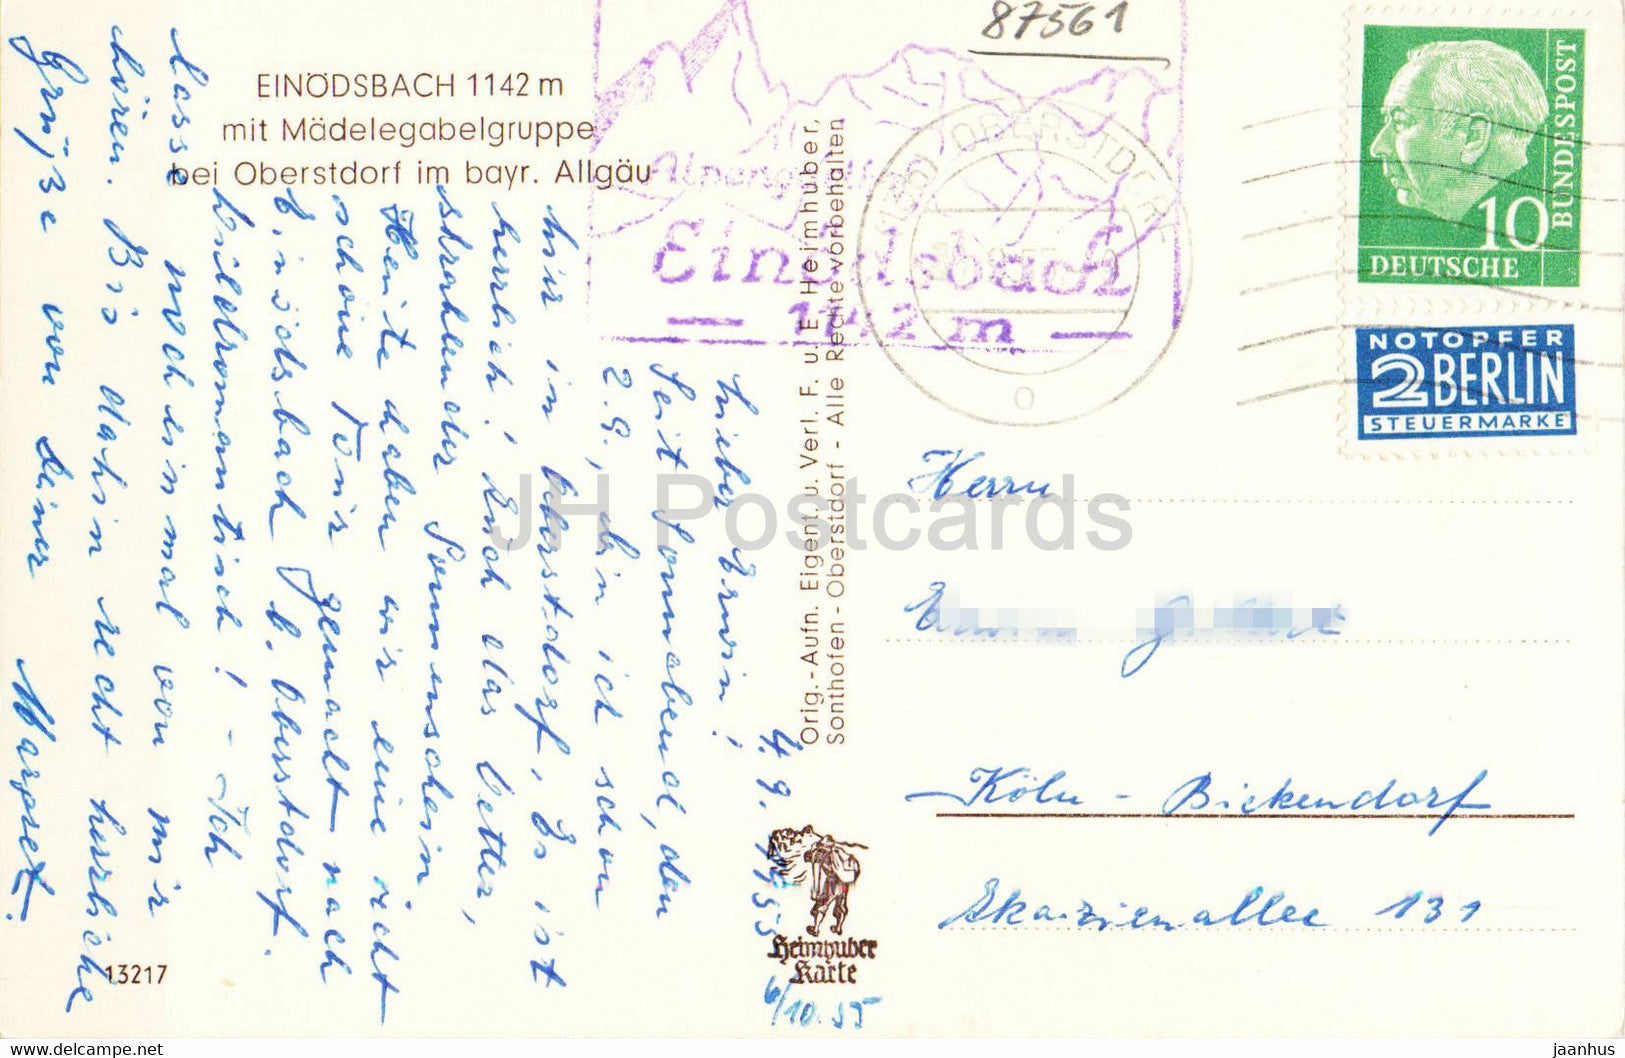 EINÖDSBACH 1142 m
mit Mädelegabelgruppe
bei Oberstdorf im bayr. Allgäu
87561
Einödsbach
— 1142 m —
OBERSTDORF
o
10
DEUTSCHE
BUNDESPOST
NOTOPFER
2 BERLIN
STEUERMARKE
4. 9. 1955
Lieber Erwin!
Seit Sonnabend, den
2.9, bin ich schon
hier in Oberstdorf. Es ist
herrlich! Auch das Wetter,
strahlender Sonnenschein.
Heute haben wir eine recht
schöne Tour gemacht nach
Einödsbach b. Oberstdorf.
Wildromantisch! – Ich
lass noch einmal von mir
hören. Bis dahin recht herzliche
Grüße von Deiner
Orig.-Aufn. Eigent. u. Verl. F. u. E. Heimhuber,
Sonthofen - Oberstdorf - Alle Rechte vorbehalten
Heimhuber
Karte
6/10.55
13217
Herrn
Köln - Bickendorf
Akazienallee 131
JH Postcards
www.delcampe.net
jaanhus